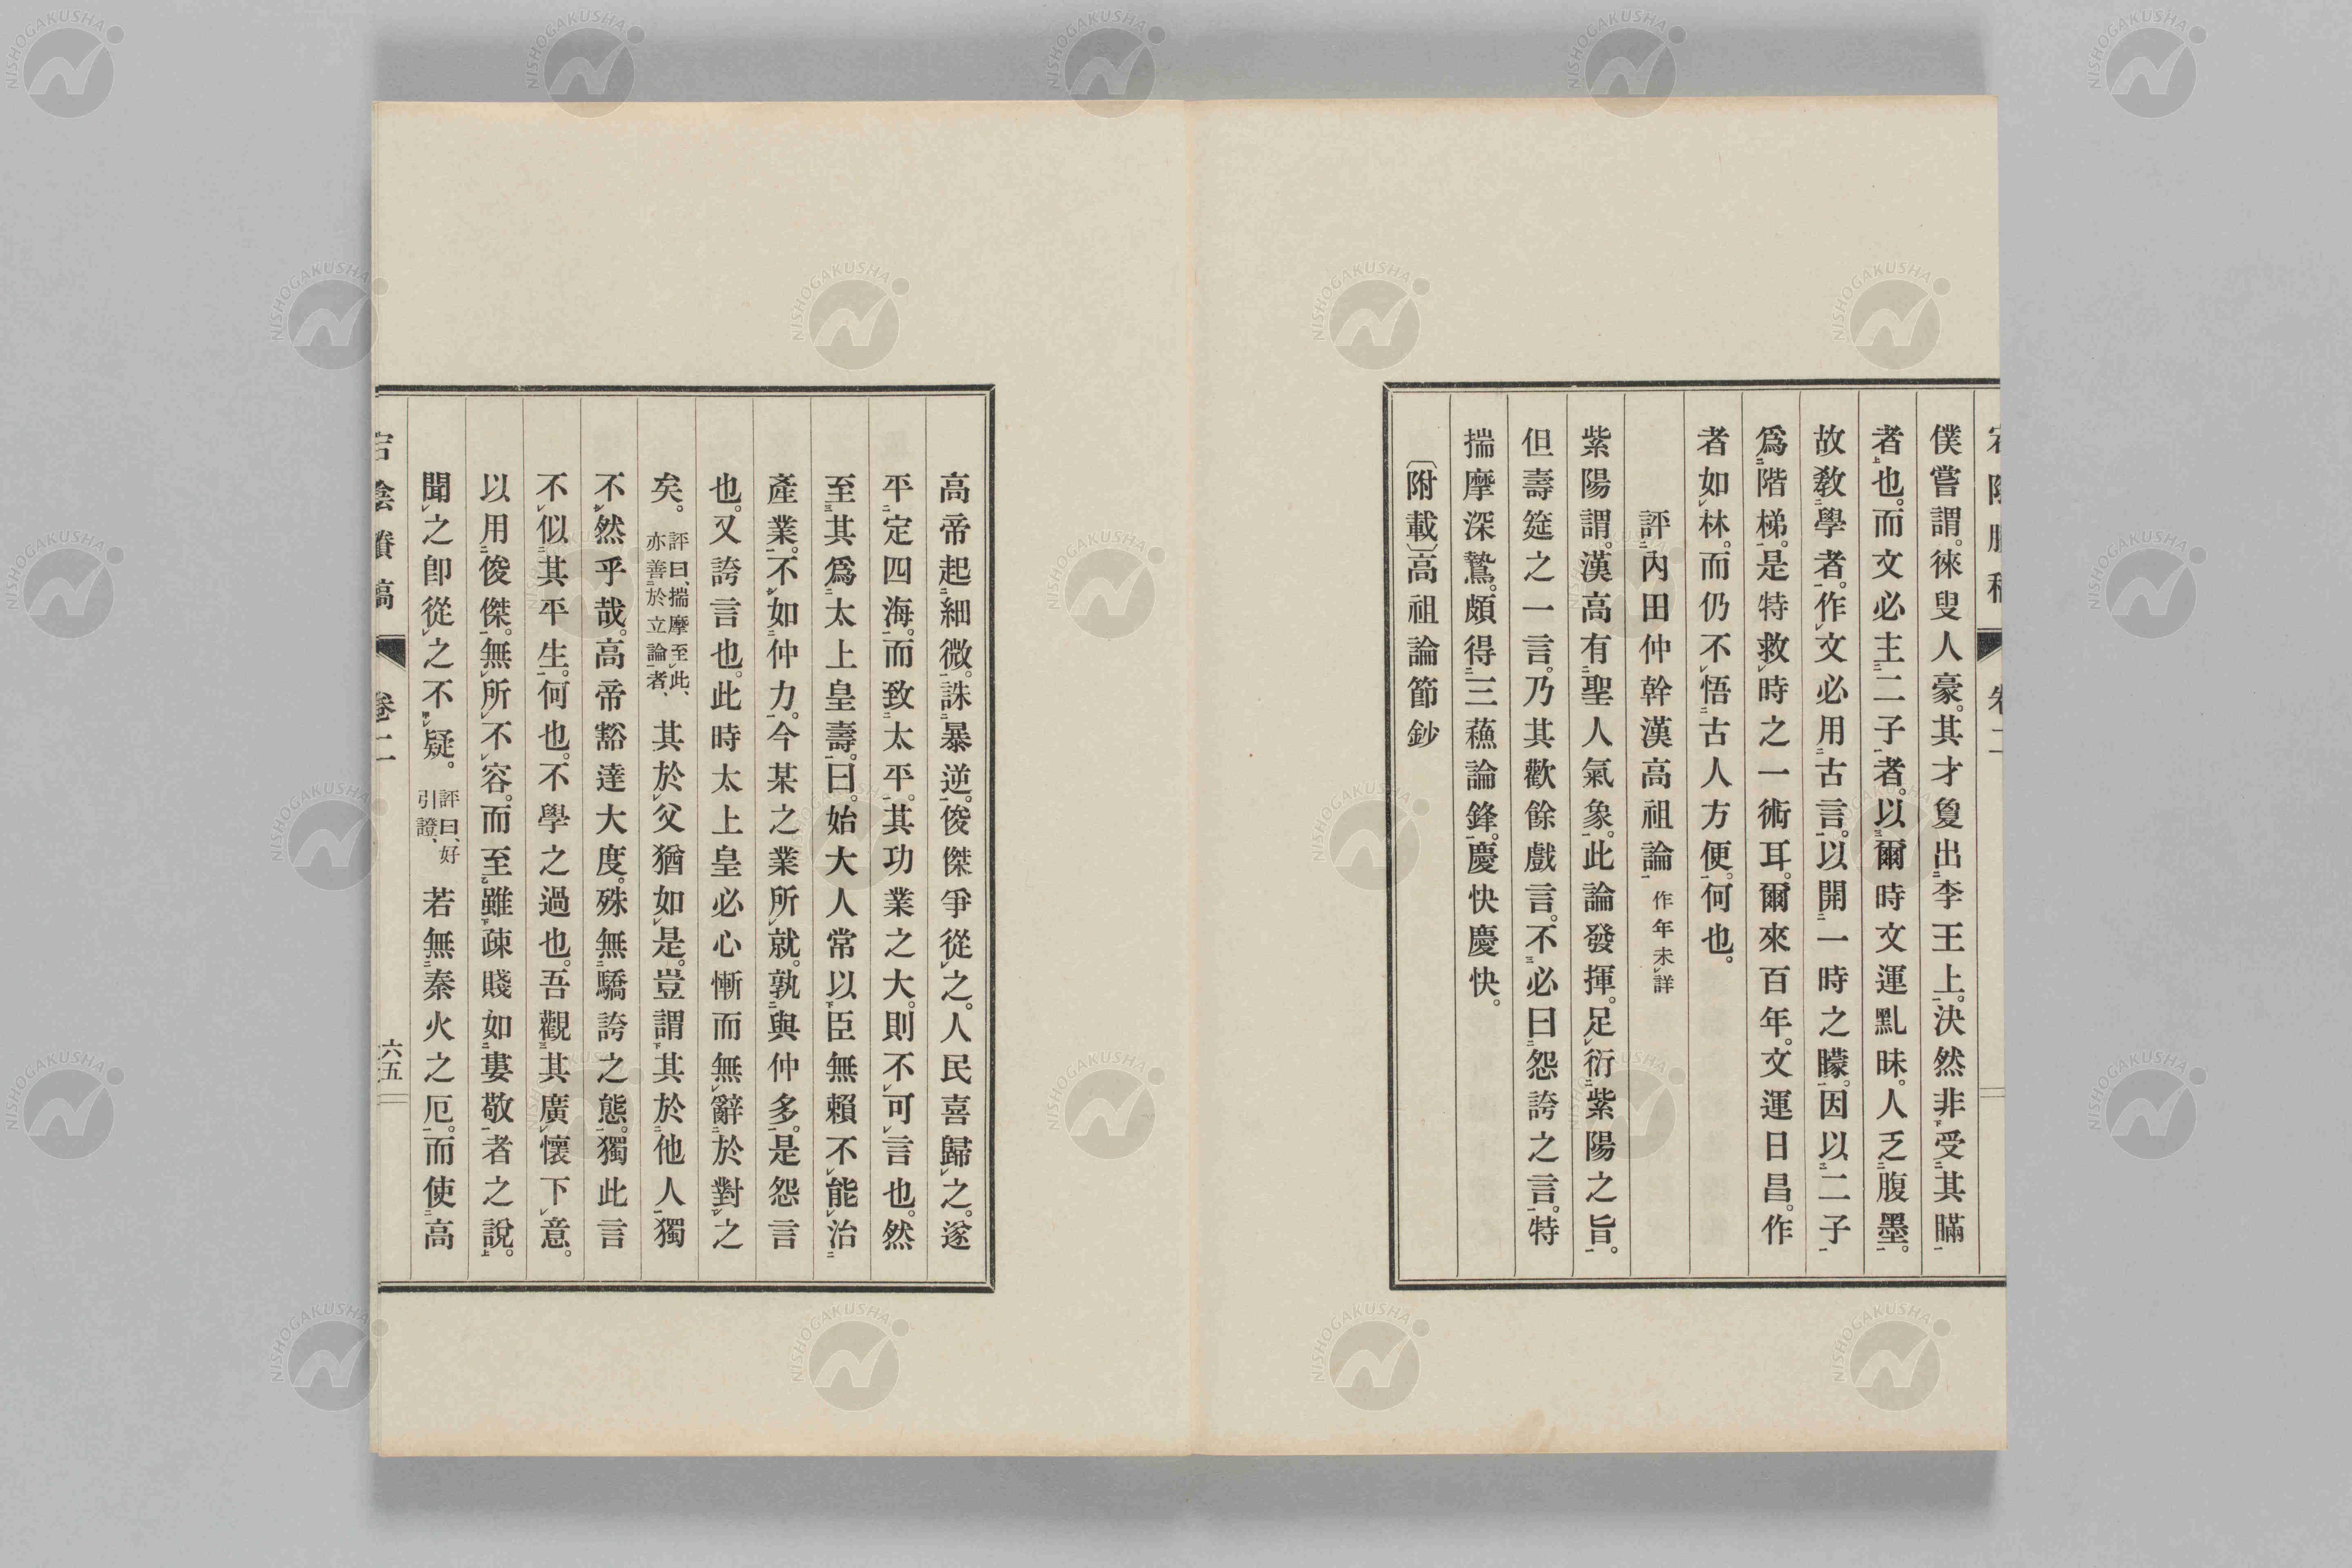 僕嘗謂。徠叟人豪。其才敻出李王上。決然非受其瞞
者也。而文必主二子者。以爾時文運䵝昧。人乏腹墨。
故教學者。作文必用古言。以開一時之矇。因以二子
爲階梯。是特救時之一術耳。爾來百年。文運日昌。作
者如林。而仍不悟古人方便。何也。
評內田仲幹漢高祖論 作年未詳
紫陽謂。漢高有聖人氣象。此論發揮。足衍紫陽之旨。
但壽筵之一言。乃其歡餘戲言。不必曰怨誇之言。特
揣摩深鷙。頗得三蘓論鋒。慶快慶快。
〔附載〕高祖論節鈔
高帝起細微。誅暴逆。俊傑爭從之。人民喜歸之。遂
平定四海。而致太平。其功業之大。則不可言也。然
至其爲太上皇壽。曰。始大人常以臣無賴不能治
產業。不如仲力。今某之業所就。孰與仲多。是怨言
也。又誇言也。此時太上皇必心慚而無辭於對之
矣。評曰、揣摩至此、亦善於立論者、其於父猶如是。豈謂其於他人獨
不然乎哉。高帝豁達大度。殊無驕誇之態。獨此言
不似其平生。何也。不學之過也。吾觀其廣懷下意。
以用俊傑。無所不容。而至雖疎賤如婁敬者之說。
聞之卽從之不疑。評曰、好引證、若無秦火之厄。而使高
卷二
六五
NISHOGAKUSHA